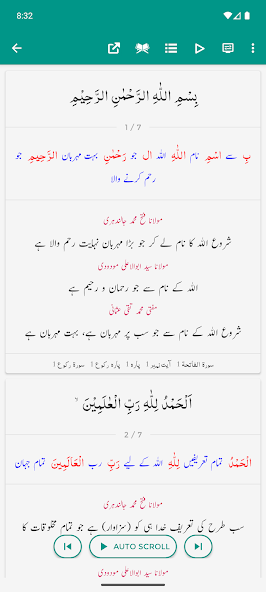 8:32
بِسْمِ اللّٰهِ الرَّحْمٰنِ الرَّحِيْمِ
1 / 7
بِ سے اسْمِ نام اللّٰهِ اللہ ال جو رَحْمٰنِ بہت مہربان الرَّحِيْمِ جو
رحم کرنے والا
مولانا فتح محمد جالندہری
شروع الله کا نام لے کر جو بڑا مہربان نہایت رحم والا ہے
مولانا سید ابوالاعلی مودودی
اللہ کے نام سے جو رحمان و رحیم ہے
مفتی محمد تقی عثمانی
شروع اللہ کے نام سے جو سب پر مہربان ہے، بہت مہربان ہے
سورۃ الفاتحة 1 آیت نمبر 1 پارہ 1 پارہ رکوع 1 سورۃ رکوع 1
اَلْحَمْدُ لِلّٰهِ رَبِّ الْعٰلَمِيْنَ
2 / 7
الْحَمْدُ تمام تعریفیں لِلّٰهِ اللہ کے لیے رَبِّ رب الْعَالَمِينَ تمام جہان
مولانا فتح محمد جالندہری
سب طرح کی تعریف خدا ہی کو (سزاوار) ہے جو تمام مخلوقات کا
AUTO SCROLL
مولانا سید ابوالاعلی مودودی